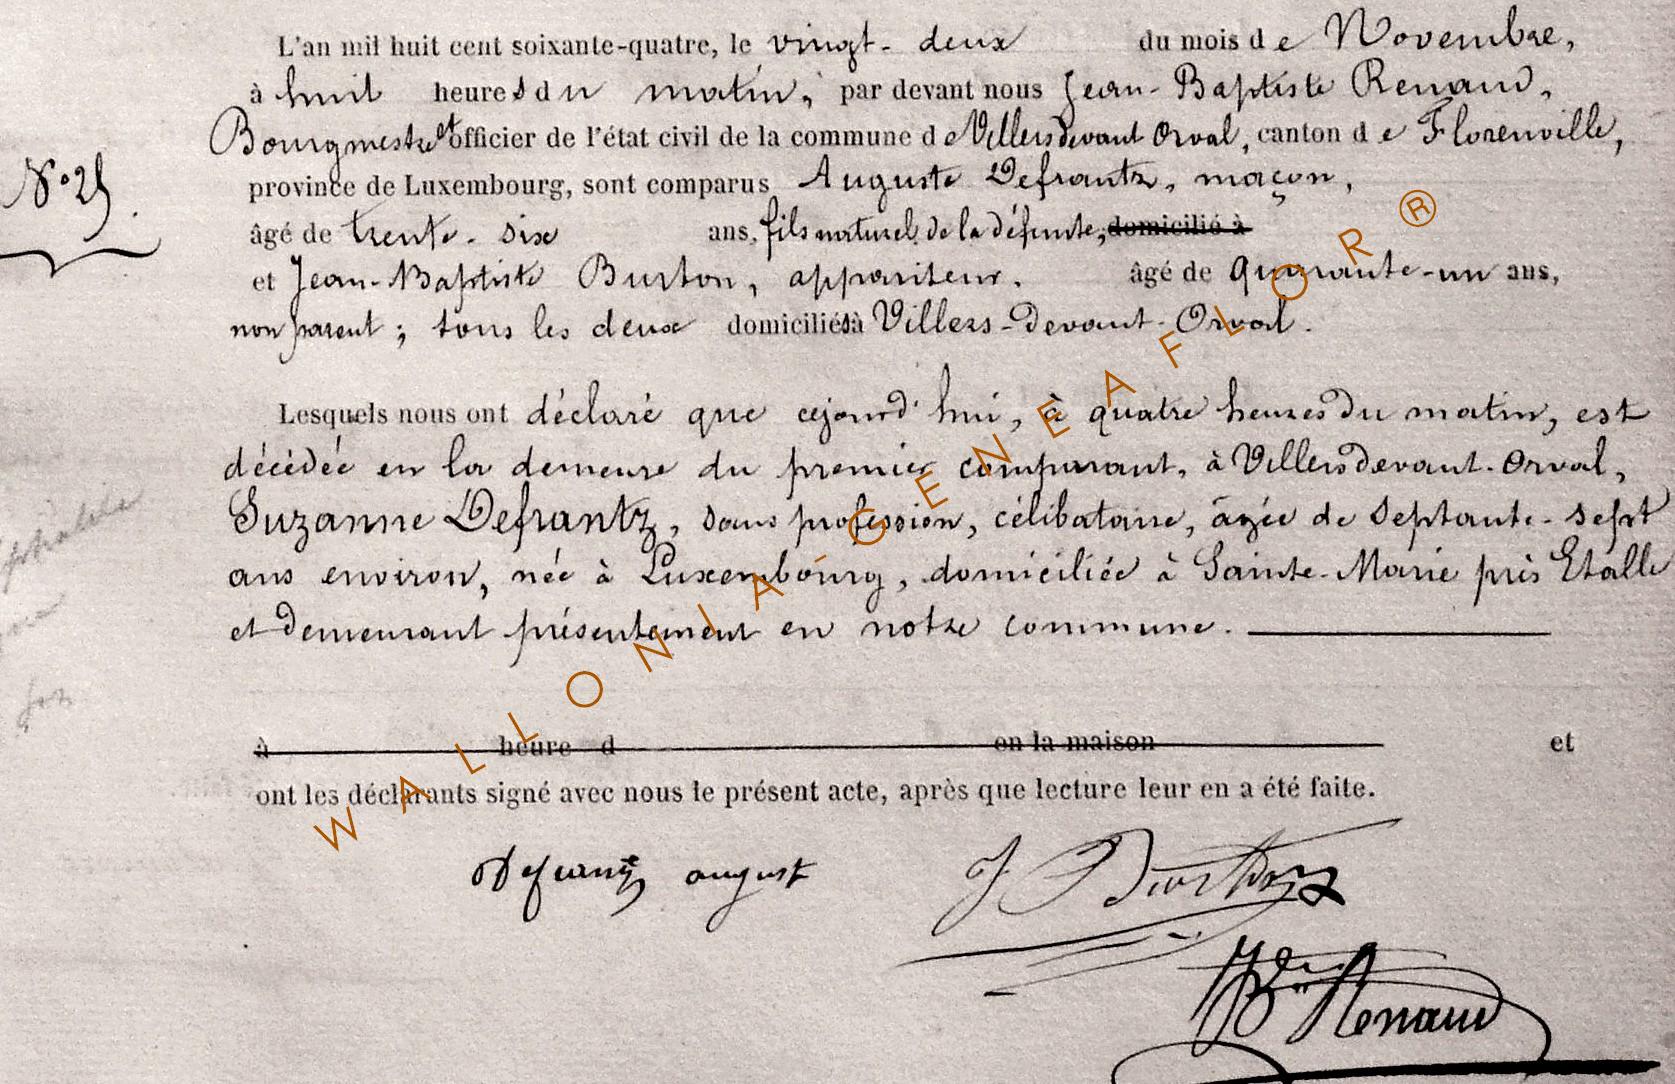 L'an mil huit cent soixante-quatre, le vingt-deux du mois de Novembre,
à huit heures du matin, par devant nous Jean-Baptiste Renaud,
Bourgmestre et officier de l'état civil de la commune de Villers devant Orval, canton de Florenville,
N° 25.
province de Luxembourg, sont comparus Auguste Defrantz, maçon,
âgé de trente-six ans, fils naturel de la défunte, domicilié à
et Jean-Baptiste Burton, appariteur. âgé de quarante-un ans,
non parent ; tous les deux domiciliés à Villers-devant-Orval.
Lesquels nous ont déclaré que cejourd'hui, à quatre heures du matin, est
décédée en la demeure du premier comparant, à Villers devant-Orval,
Suzanne Defrantz, sans profession, célibataire, âgée de septante-sept
ans environ, née à Luxembourg, domiciliée à Sainte-Marie près Etalle
et demeurant présentement en notre commune.
à heure d en la maison et
ont les déclarants signé avec nous le présent acte, après que lecture leur en a été faite.
Defrantz august J Burton
JBte Renaud
WALLONIA-GENEAFLOR ®